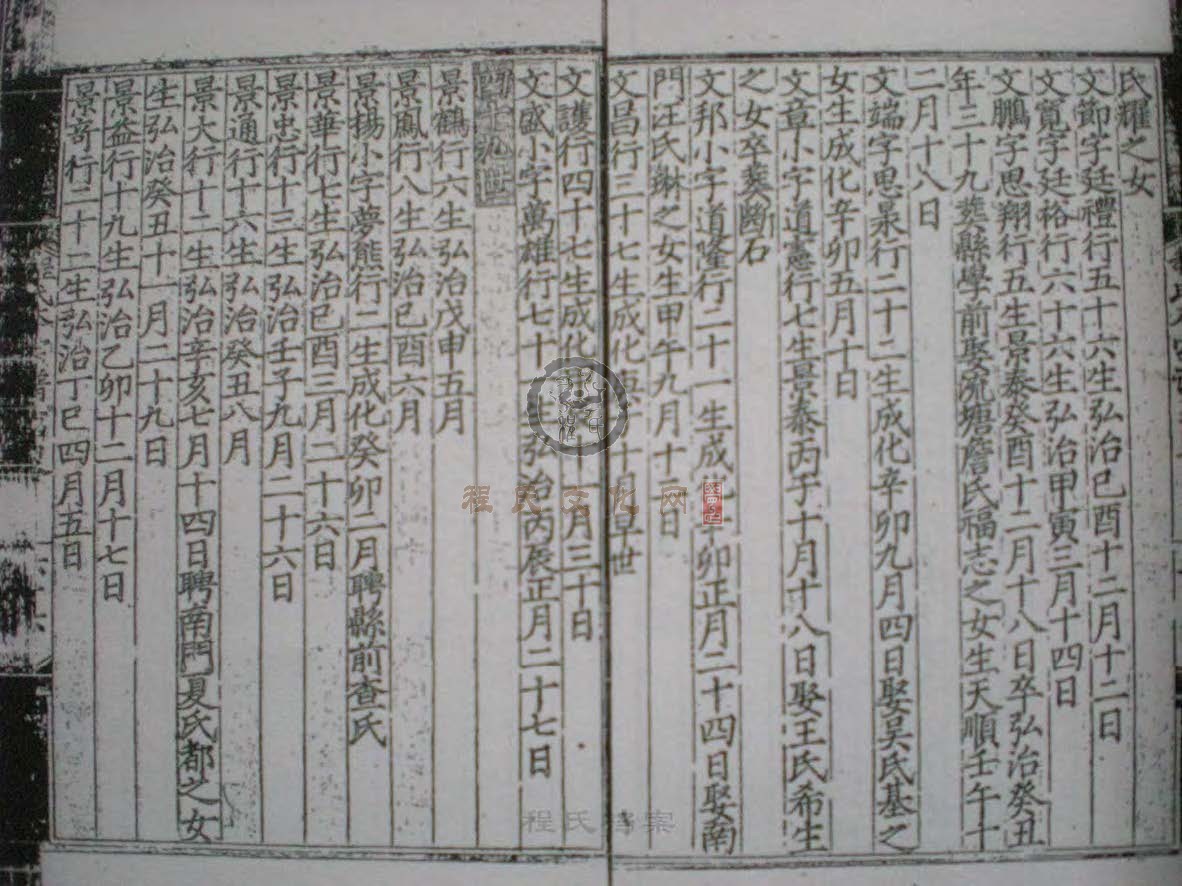 氏耀之女
文節字廷禮行五十六生弘治己酉十二月十二日
文寬字廷裕行六十六生弘治甲寅三月十四日
文鵬字思翔行五生景泰癸酉十二月十八日卒弘治癸丑
年三十九葬縣學前娶流塘詹氏福志之女生天順壬午十
二月十八日
文端字思泉行二十二生成化辛卯九月四日娶吴氏基之
女生成化辛卯五月十日
文章小字道憲行七生景泰丙子十月十八日娶王氏希生
之女卒葬斷石
文邦小字道隆行二十一生成化辛卯正月二十四日娶南
門汪氏琳之女生甲午九月十三日
文昌行三十七生成化庚子十月早世
文護行四十七生成化十一月三十日
文盛小字萬雄行七十生弘治丙辰正月二十七日
第十九世
景鶴行六生弘治戊申五月
景鳳行八生弘治己酉六月
景揚小字夢熊行二生成化癸卯二月聘縣前查氏
景華行七生弘治己酉二月二十六日
景忠行十三生弘治壬子九月二十六日
景通行十六生弘治癸丑八月
景大行十二生弘治辛亥七月十四日聘南門夏氏都之女
生弘治癸丑十一月二十九日
景益行十九生弘治乙卯十二月十七日
景奇行二十二生弘治丁巳四月五日
程氏文化网
程氏档案